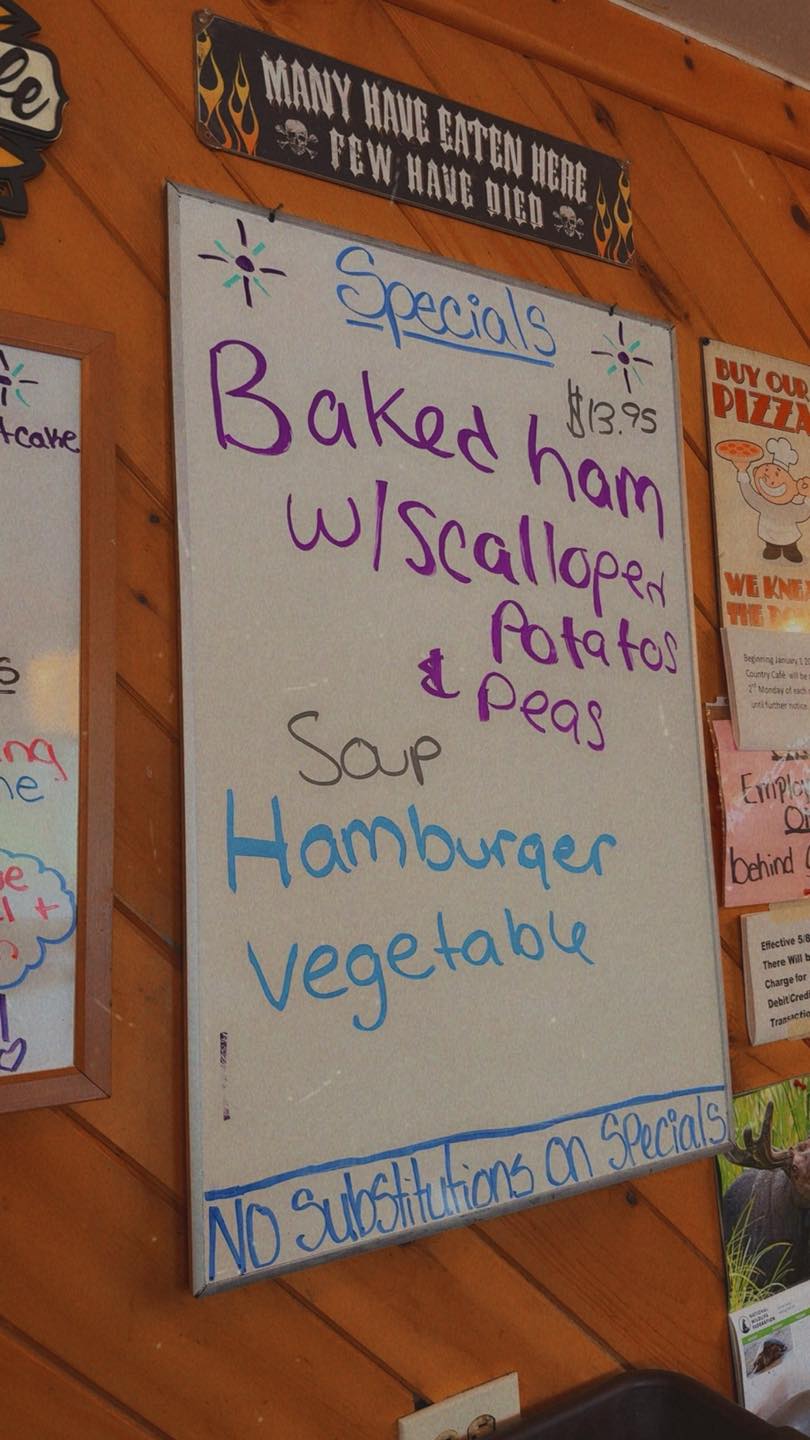 MANY HAVE EATEN HERE
FEW HAVE DIED
Specials
$13.95
Baked ham
w/Scalloped
Potatos
& Peas
Soup
Hamburger
Vegetable
NO Substitutions on Specials
BUY OUR
PIZZA
WE
THE
Beginning January 1
Country Café will be
2nd Monday of each
until further notice
behind
Effective 5/8
There Will b
Charge for
Debit/Credi
Transactio
NATIONAL
WILDLIFE
FEDERATION